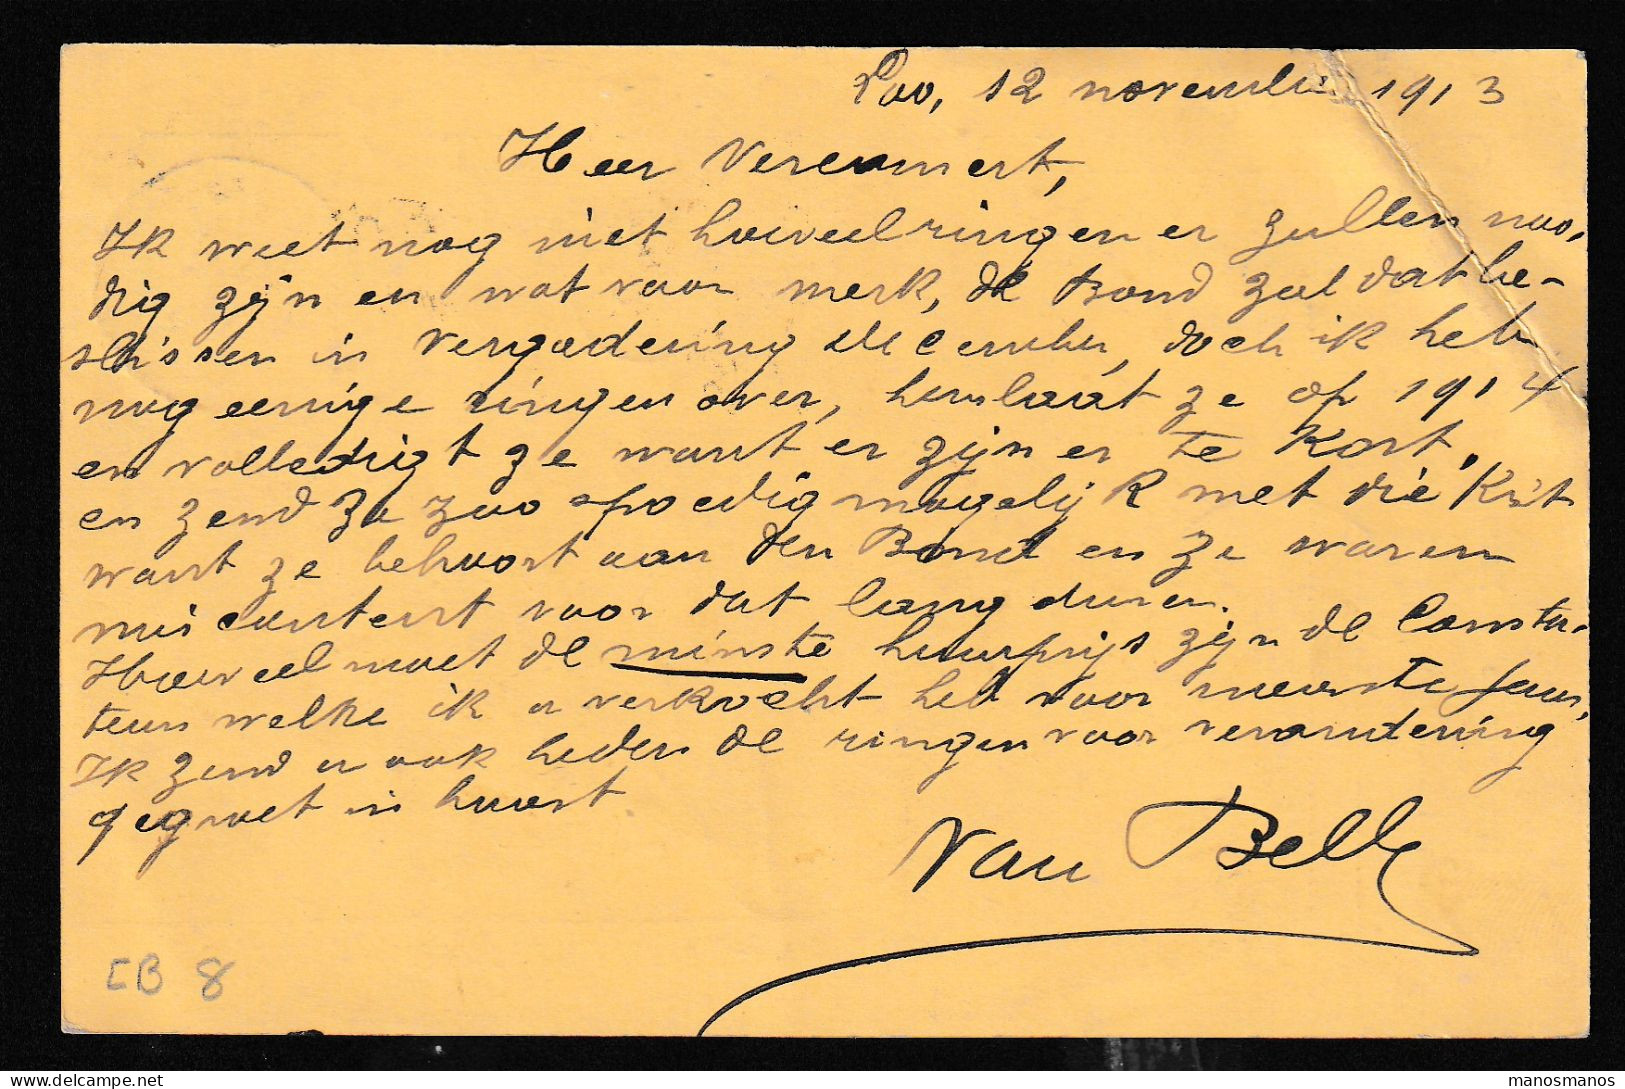 Loo, 12 november 1913
Heer Vercamert,
Ik weet nog niet hoeveel ringen er zullen noo-
dig zijn en wat voor merk, de Bond zal dat be-
slissen in vergadering december, doch ik heb
nog eenige ringen over, herslaat ze op 1914
en volledigt ze want er zijn er te kort,
en zend ze zoo spoedig mogelijk met die kist
want ze behoort aan den Bond en ze waren
miscontent voor dat lang duren.
Hoeveel moet de minste huurprijs zijn de Consta-
teurs welke ik er verkocht heb voor naaste jaar,
Ik zend er ook heden de ringen voor verandering
gegroet in haast
Van Belle
CB 8
manosmanos